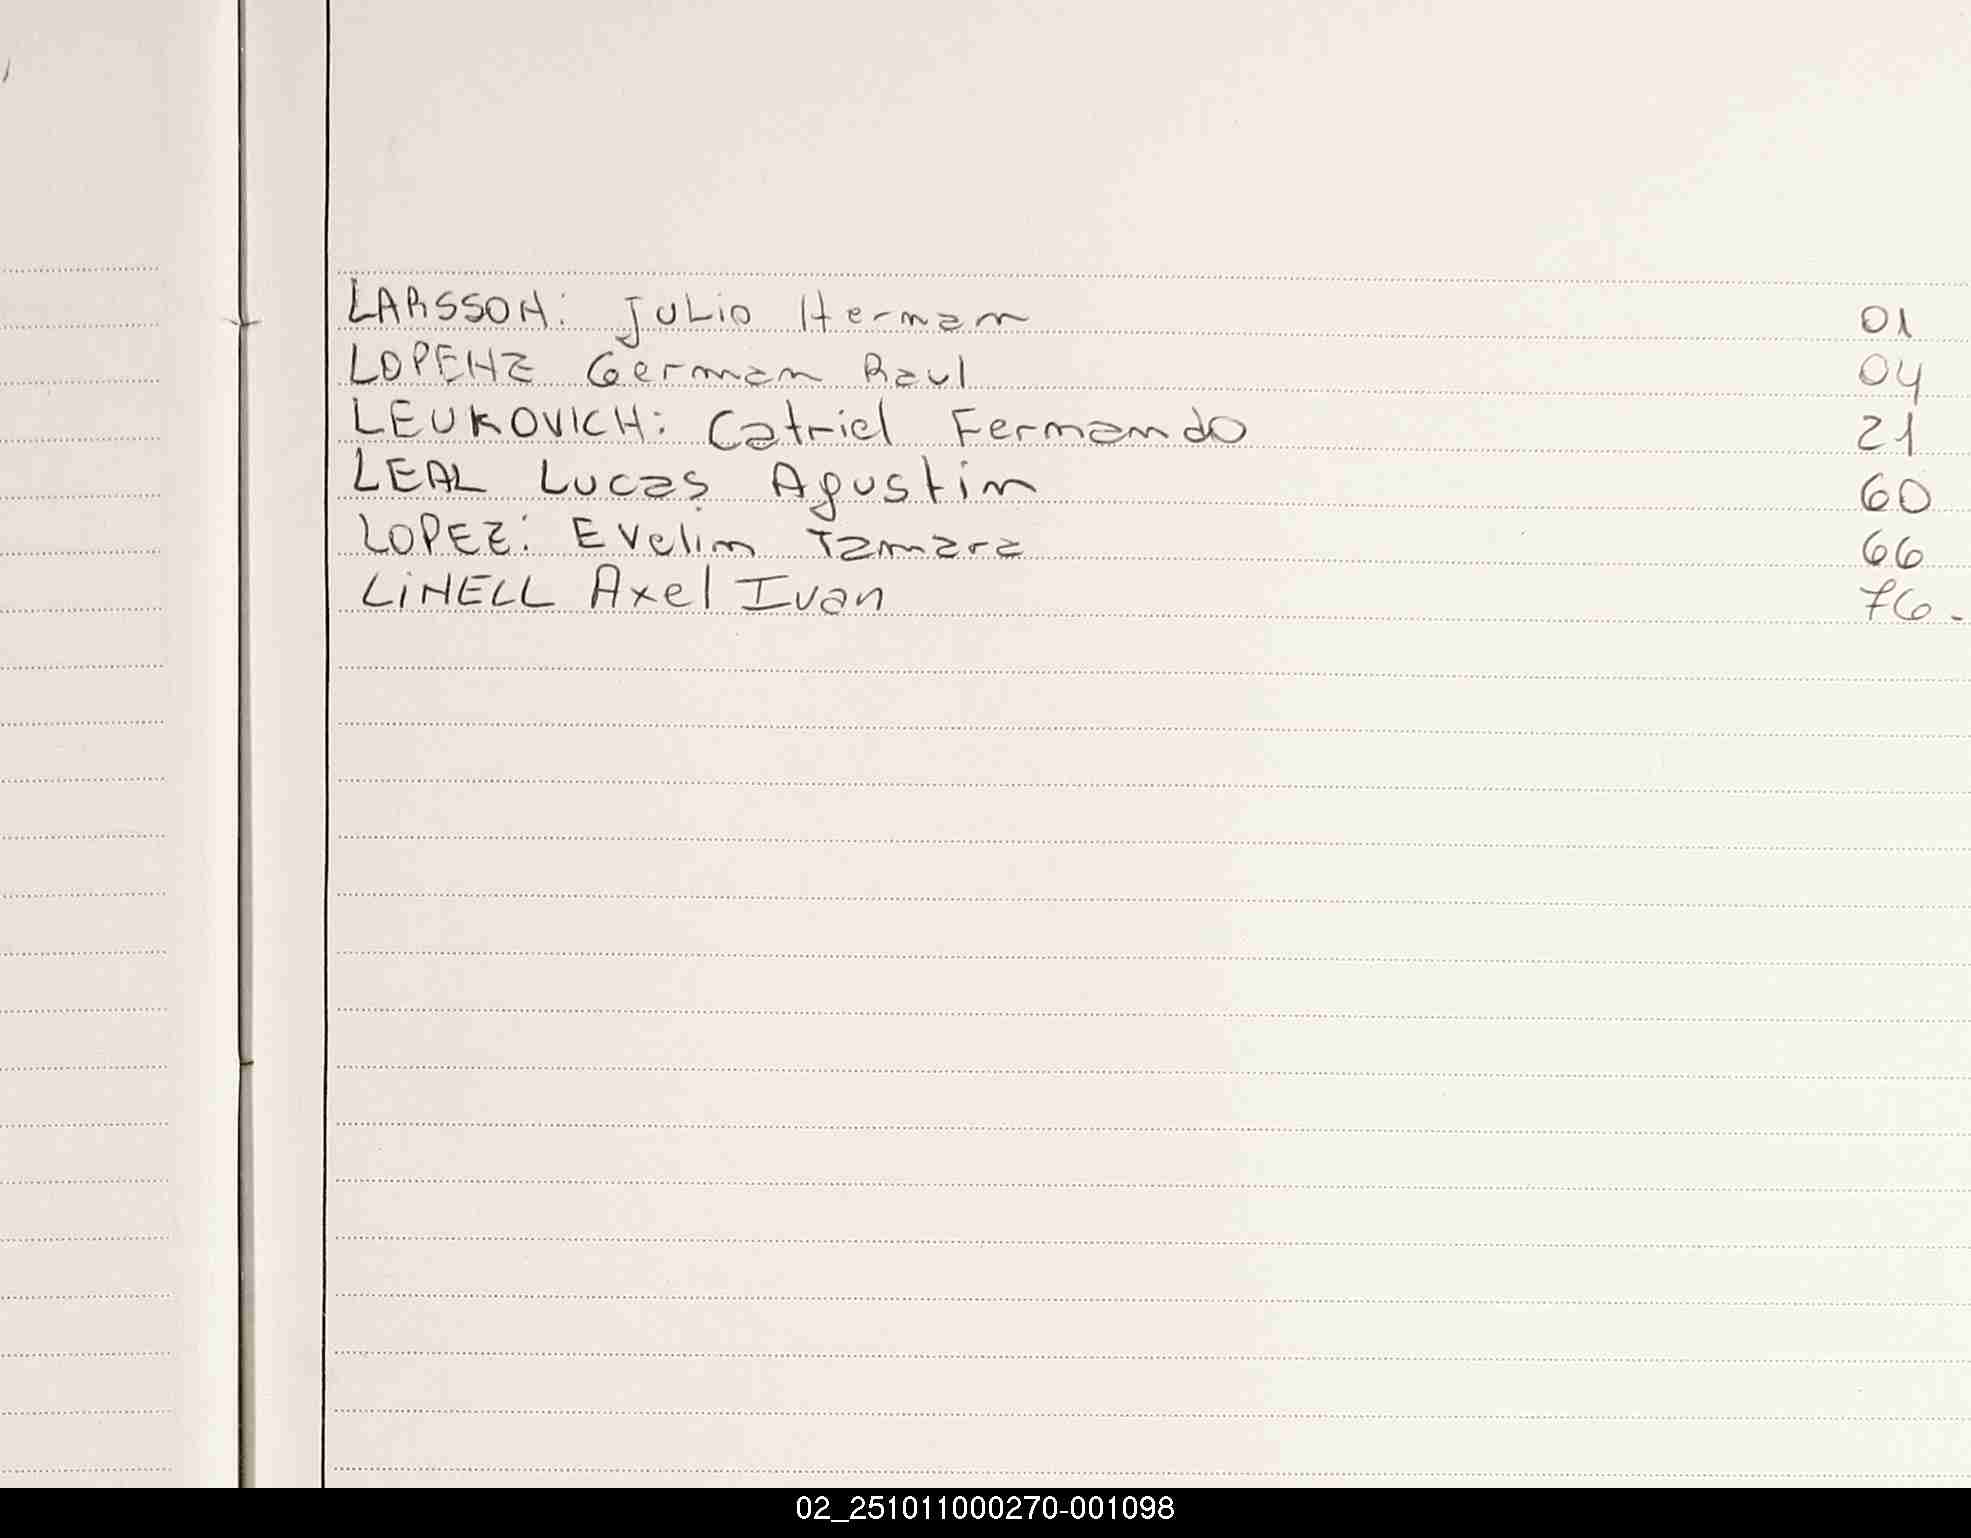 LARSSON: Julio Hernan 01
LOPENZ German Raul 04
LEUKOVICH: Catriel Fernando 21
LEAL Lucas Agustin 60
LOPEZ: Evelin Tamara 66
LiNELL Axel Ivan 76.-
02_251011000270-001098